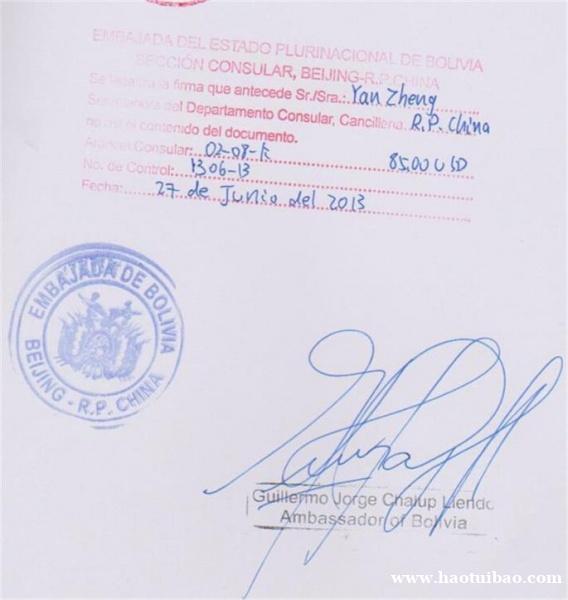 EMBAJADA DEL ESTADO PLURINACIONAL DE BOLIVIA
SECCIÓN CONSULAR, BEIJING-R.P.CHINA
Se legaliza la firma que antecede Sr./Sra.: Yan Zheng
del Departamento Consular, Cancillería: R.P. China
no así el contenido del documento.
Arancel Consular: 02-08-K 85.00 USD
No. de Control: 1306-13
Fecha: 27 de Junio del 2013
EMBAJADA DE BOLIVIA
BEIJING - R.P. CHINA
Guillermo Jorge Chalup Liendo
Ambassador of Bolivia
www.haotuibao.com